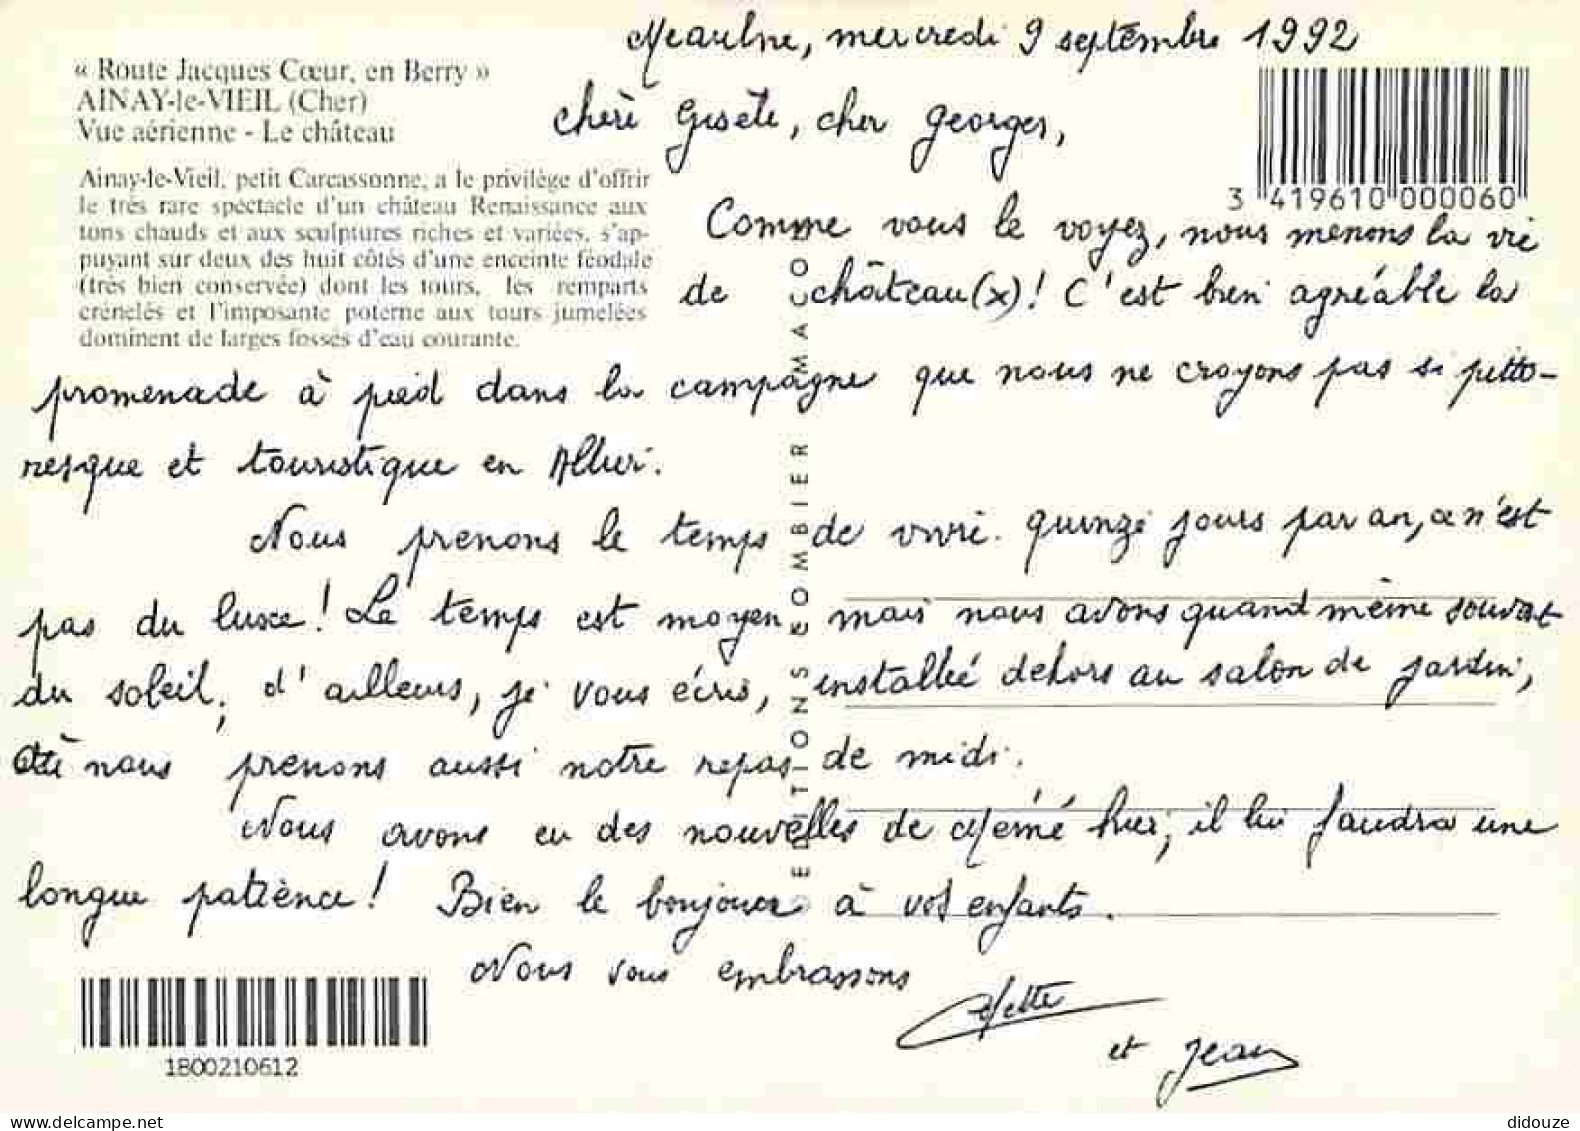 Meaulne, mercredi 9 septembre 1992
« Route Jacques Cœur, en Berry »
AINAY-le-VIEIL (Cher)
Vue aérienne - Le château
Ainay-le-Vieil, petit Carcassonne, a le privilège d'offrir
le très rare spectacle d'un château Renaissance aux
tons chauds et aux sculptures riches et variées, s'ap-
puyant sur deux des huit côtés d'une enceinte féodale
(très bien conservée) dont les tours, les remparts
crénelés et l'imposante poterne aux tours jumelées
dominent de larges fossés d'eau courante.
3 419610 000060
Chère Gisèle, cher Georges,
Comme vous le voyez, nous menons la vie
de château(x)! C'est bien agréable la
promenade à pied dans la campagne que nous ne croyons pas si pitto-
resque et touristique en Allier.
Nous prenons le temps de vivre. Quinze jours par an, ce n'est
pas du luxe! Le temps est moyen mais nous avons quand même souvent
du soleil, d'ailleurs, je vous écris, installée dehors au salon de jardin,
où nous prenons aussi notre repas de midi.
Nous avons eu des nouvelles de Mémé hier, il lui faudra une
longue patience! Bien le bonjour à vos enfants.
Nous vous embrassons
et Jean
EDITIONS COMBIER MACON
1800210612
didouze